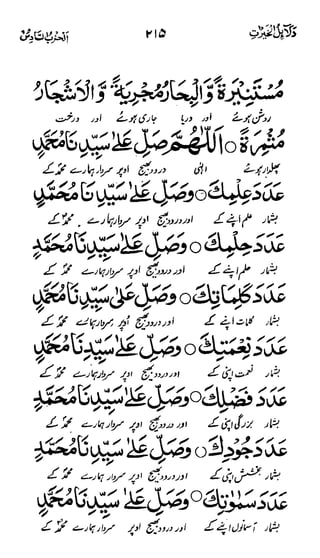 دلائل الخیرات ۲۱۵ الحزب السادس
مُسْتَنِیْرَةً وَّالْبِحَارُ مُجْرِیَةً وَّالْاَشْجَارُ
روشن ہوئے اور دریا جاری ہوئے اور درخت
مُثْمِرَةً ○ اَللّٰهُمَّ صَلِّ عَلٰی سَیِّدِنَا مُحَمَّدٍ
پھلدار ہوئے الٰہی درود بھیج اوپر سردار ہمارے محمد کے
عَدَدَ عِلْمِكَ ○ وَصَلِّ عَلٰی سَیِّدِنَا مُحَمَّدٍ
بشمار علم اپنے کے اور درود بھیج اوپر سردار ہمارے محمد کے
عَدَدَ حِلْمِكَ ○ وَصَلِّ عَلٰی سَیِّدِنَا مُحَمَّدٍ
بشمار حلم اپنے کے اور درود بھیج اوپر سردار ہمارے محمد کے
عَدَدَ كَلِمَاتِكَ ○ وَصَلِّ عَلٰی سَیِّدِنَا مُحَمَّدٍ
بشمار کلمات اپنے کے اور درود بھیج اوپر سردار ہمارے محمد کے
عَدَدَ نِعْمَتِكَ ○ وَصَلِّ عَلٰی سَیِّدِنَا مُحَمَّدٍ
بشمار نعمت اپنی کے اور درود بھیج اوپر سردار ہمارے محمد کے
عَدَدَ فَضْلِكَ ○ وَصَلِّ عَلٰی سَیِّدِنَا مُحَمَّدٍ
بشمار بزرگی اپنی کے اور درود بھیج اوپر سردار ہمارے محمد کے
عَدَدَ جُوْدِكَ ○ وَصَلِّ عَلٰی سَیِّدِنَا مُحَمَّدٍ
بشمار بخشش اپنی کے اور درود بھیج اوپر سردار ہمارے محمد کے
عَدَدَ سَمٰوٰتِكَ ○ وَصَلِّ عَلٰی سَیِّدِنَا مُحَمَّدٍ
بشمار آسمانوں اپنے کے اور درود بھیج اوپر سردار ہمارے محمد کے